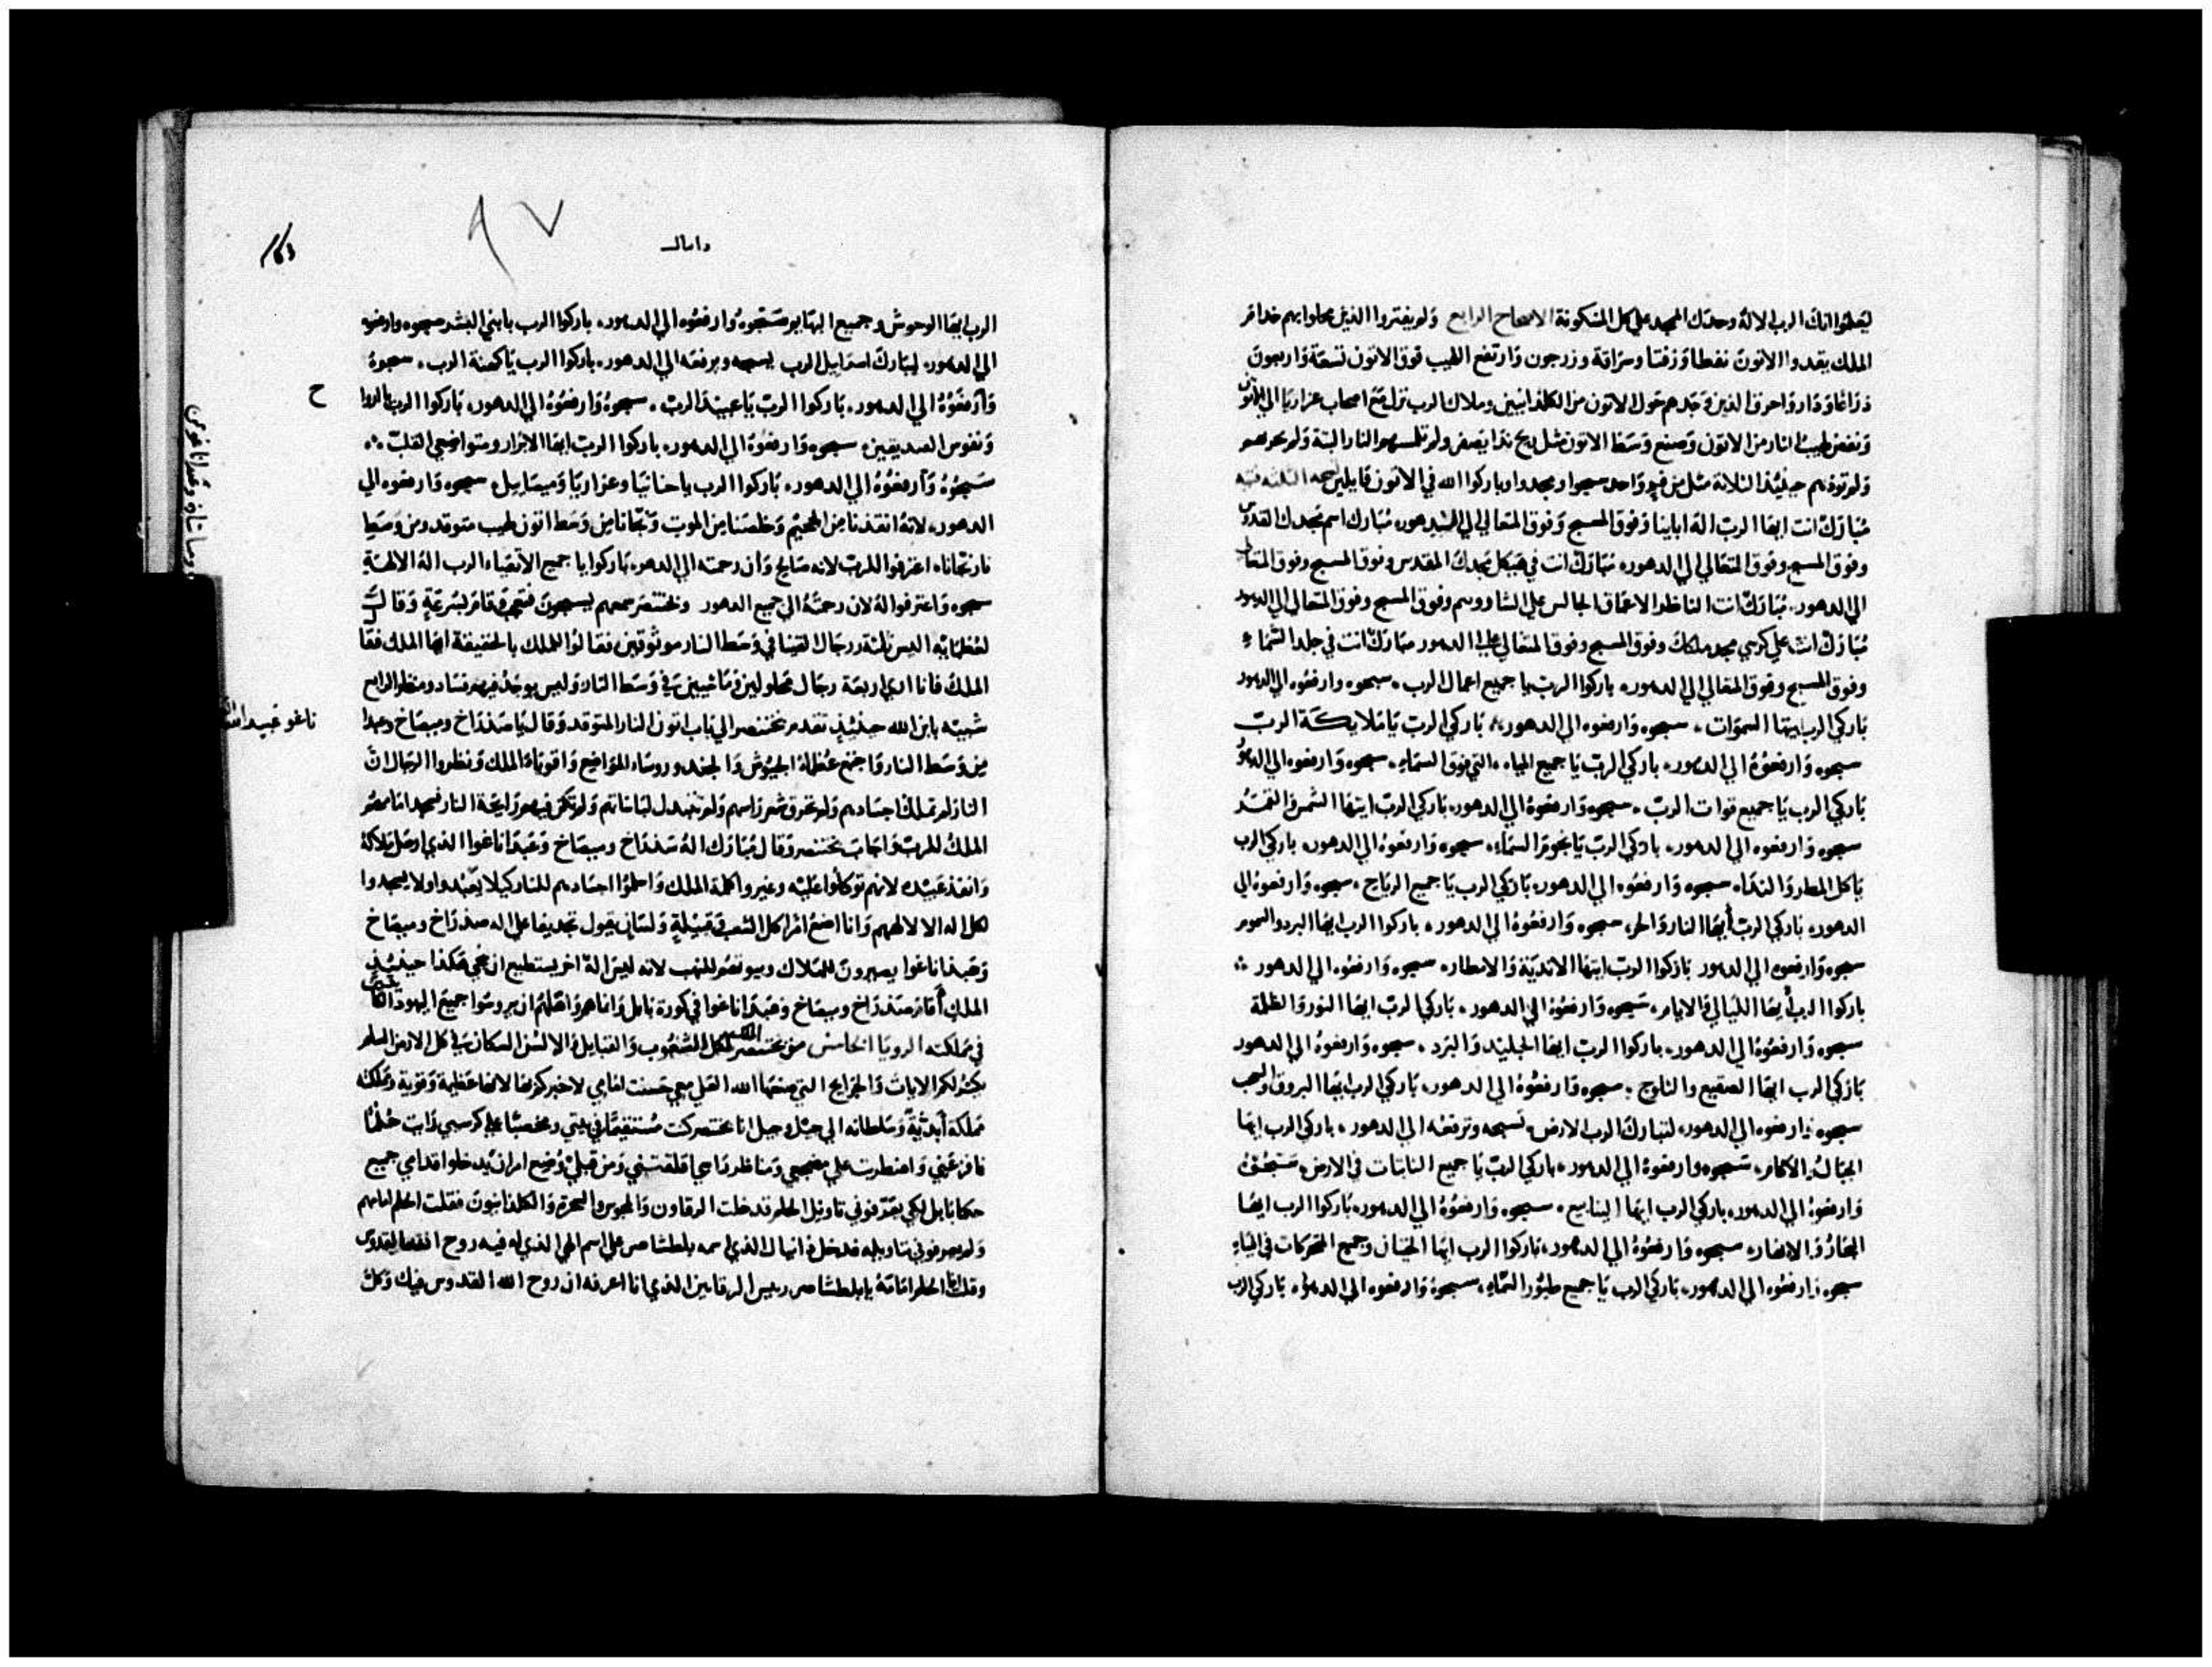 ليعلموا انك الرب الاله وحدك الممجد على كل المسكونة الاصحاح الرابع ولم يفتروا الذين جعلوا بهم خدام
الملك يقدوا الاتون نفطا وزفتا وسراقة وزرجون وارتفع اللهيب فوق الاتون تسعة واربعون
ذراعا ودار واحرق الذين وجدهم حول الاتون من الكلدانيين وملاك الرب نزل مع اصحاب عزاريا الي الاتون
ونفض لهيب النار من الاتون وصنع وسط الاتون مثل ريح ندا يصفر ولم تلمسهم النار البتة ولم تحزنهم
ولم توذيهم حينيذ الثلاثة مثل من فم واحد سبحوا ومجدوا وباركوا الله في الاتون قايلين
مبارك انت ايها الرب اله اباينا وفوق المسبح وفوق المتعالي الي الدهور، مبارك اسم مجدك القدوس
وفوق المسبح وفوق المتعالي الي الدهور، مبارك انت في هيكل مجدك المقدس وفوق المسبح وفوق المتعالي
الي الدهور، مبارك انت الناظر الاعماق الجالس علي الشاروبيم وفوق المسبح وفوق المتعالي الي الدهور
مبارك انت علي كرسي مجد ملكك وفوق المسبح وفوق المتعالي الي الدهور مبارك انت في جلد السماء
وفوق المسبح وفوق المتعالي الي الدهور، باركوا الرب يا جميع اعمال الرب، سبحوه وارفعوه الي الدهور
باركي الرب ايتها السموات، سبحوه وارفعوه الي الدهور، باركي الرب يا ملايكة الرب
سبحوه وارفعوه الي الدهور، باركي الرب يا جميع المياه، التي فوق السماء، سبحوه وارفعوه الي الدهور
باركي الرب يا جميع قوات الرب، سبحوه وارفعوه الي الدهور، باركي الرب ايتها الشمس والقمر
سبحوه وارفعوه الي الدهور، باركي الرب يا نجوم السماء، سبحوه وارفعوه الي الدهور، باركي الرب
يا كل المطر والنداء، سبحوه وارفعوه الي الدهور، باركي الرب يا جميع الرياح، سبحوه وارفعوه الي
الدهور، باركي الرب ايها النار والحر، سبحوه وارفعوه الي الدهور، باركوا الرب ايها البرد والسموم
سبحوه وارفعوه الي الدهور باركوا الرب ايتها الاندية والامطار، سبحوه وارفعوه الي الدهور
باركوا الرب ايها الليالي والايام، سبحوه وارفعوه الي الدهور، باركي الرب ايها النور والظلمة
سبحوه وارفعوه الي الدهور، باركوا الرب ايها الجليد والبرد، سبحوه وارفعوه الي الدهور
باركي الرب ايها الصقيع والثلوج، سبحوه وارفعوه الي الدهور، باركي الرب ايها البروق والسحب
سبحوه وارفعوه الي الدهور، لتبارك الرب الارض، تسبحه وترفعه الي الدهور، باركي الرب ايها
الجبال والاكام، سبحوه وارفعوه الي الدهور، باركي الرب يا جميع النابتات في الارض، سبحوه
وارفعوه الي الدهور، باركي الرب ايها الينابيع، سبحوه وارفعوه الي الدهور، باركوا الرب ايها
البحار والانهار، سبحوه وارفعوه الي الدهور، باركوا الرب ايها الحيتان وجميع المتحركات في المياه
سبحوه وارفعوه الي الدهور، باركي الرب يا جميع طيور السماء، سبحوه وارفعوه الي الدهور، باركي الرب
دانيال
٩٧
163
الرب ايها الوحوش وجميع البهايم سبحوه وارفعوه الي الدهور، باركوا الرب يا بني البشر سبحوه وارفعوه
الي الدهور، ليبارك اسراييل الرب يسبحه ويرفعه الي الدهور، باركوا الرب يا كهنة الرب، سبحوه
وارفعوه الي الدهور، باركوا الرب يا عبيد الرب، سبحوه وارفعوه الي الدهور، باركوا الرب يا ارواح
ح
ونفوس الصديقين، سبحوه وارفعوه الي الدهور، باركوا الرب ايها الابرار ومتواضعي القلب
سبحوه وارفعوه الي الدهور، باركوا الرب يا حنانيا وعزاريا وميصاييل، سبحوه وارفعوه الي
الدهور، لانه انقذنا من الجحيم وخلصنا من الموت ونجانا من وسط اتون لهيب متوقد ومن وسط
نار نجانا، اعترفوا للرب لانه صالح وان رحمته الي الدهر، باركوا يا جميع الاتقياء الرب اله الالهة
سبحوه واعترفوا له لان رحمته الي جميع الدهور وبختنصر سمعهم يسبحون فتعجب وقام بسرعة وقال
لعظمايه اليس ثلثة رجال القينا في وسط النار موثوقين فقالوا للملك بالحقيقة ايها الملك فقا
الملك فانا اري اربعة رجال محلولين وماشيين في وسط النار وليس يوجد فيهم فساد ومنظر الرابع
شبيه بابن الله حينيذ تقدم بختنصر الي باب اتون النار المتوقد وقال يا سدراخ وميصاخ وعبدا
ناغو عبيد الله
من وسط النار واجتمع عظماء الجيوش والجند وروساء المواضع واقوياء الملك ونظروا الرجال ان
النار لم تملك اجسادهم ولم تحرق شعر راسهم ولم تتبدل لباساتهم ولم تكن فيهم رايحة النار فسجد امامهم
الملك للرب واجاب بختنصر وقال مبارك اله سدراخ وميصاخ وعبداناغوا الذي ارسل ملاكه
وانقذ عبيده لانهم توكلوا عليه وغيروا كلمة الملك واسلموا اجسادهم للنار كيلا يعبدوا ولا يسجدوا
لكل اله الا لالههم وانا اضع امرا كل الشعب وقبيلة ولسان يقول تجديفا علي اله سدراخ وميصاخ
وعبداناغوا يصيرون للهلاك وبيوتهم للنهب لانه ليس اله اخر يستطيع ان ينجي هكذا حينيذ
الملك اقام سدراخ وميصاخ وعبداناغوا في كورة بابل وانماهم واهلهم ان يروسوا جميع اليهود الذين
في مملكته الرويا الخامس من بختنصر الملك لكل الشعوب والقبايل والالسن السكان في كل الارض السلام
يكثر لكم الايات والجرايح التي صنعها الله العلي معي حسنت امامي لاخبركم بها لانها عظيمة وقوية ومملكته
مملكة ابدية وسلطانه الي جيل وجيل انا بختنصر كنت مستقيما في بيتي ومخصبا علي كرسي رايت حلما
فافزعني واضطربت علي مضجعي ومناظر راسي اقلقتني ومن قبلي وضع امر ان يدخلوا قدامي جميع
حكما بابل لكي يعرفوني تاويل الحلم فدخلت الرقاون والمجوس والسحرة والكلدانيون فقلت الحلم امامهم
ولم يعرفوني بتاويله فدخل دانيال الذي اسمه بلطشاصر علي اسم الهي الذي له فيه روح الله القدوس
وقلت الحلم امامه يا بلطشاصر رييس الرقايين الذي انا اعرفه ان روح الله القدوس فيك وكل